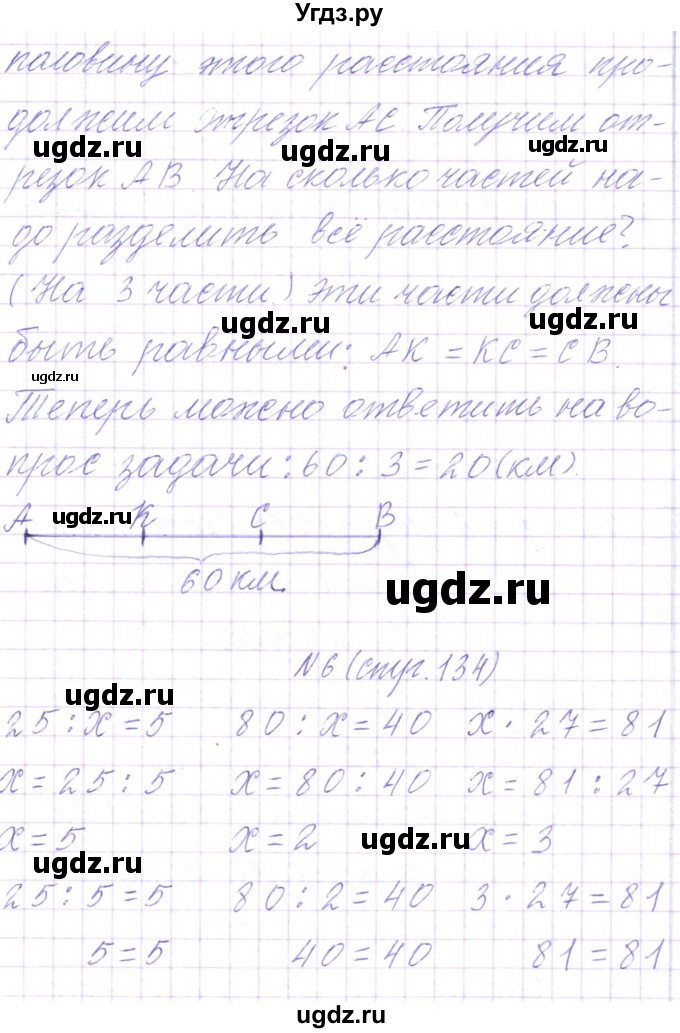 Угдз.ру
половину этого расстояния про-
должим отрезок АС. Получим от-
ugdz.ru ugdz.ru
резок АВ. На сколько частей на-
до разделить всё расстояние?
(На 3 части) Эти части должны
ugdz.ru ugdz.ru
быть равными: АК = КС = СВ.
ugdz.ru
Теперь можно ответить на во-
прос задачи: 60 : 3 = 20 (км).
А К С В
ugdz.ru
60 км.
ugdz.ru
N 6 (стр. 134)
ugdz.ru
25 : х = 5 80 : х = 40 х · 27 = 81
х = 25 : 5 х = 80 : 40 х = 81 : 27
х = 5 х = 2 х = 3
ugdz.ru ugdz.ru
25 : 5 = 5 80 : 2 = 40 3 · 27 = 81
5 = 5 40 = 40 81 = 81
ugdz.ru